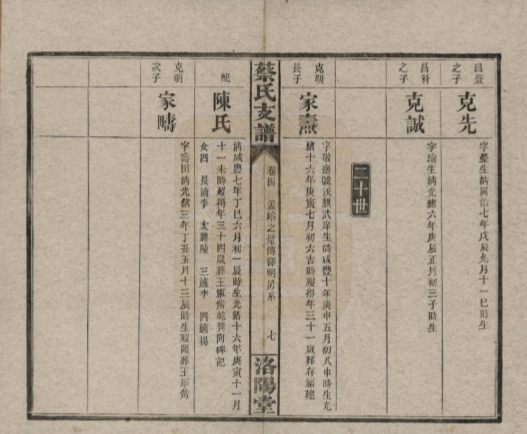 昌登之子
克先
字榮生清同治七年戊辰九月十一巳時生
昌
之子
克誠
字瑜生清光緒六年庚辰正月初三子時生
二十世
克明長子
家燾
字敬齋號沃
武庠生清咸豐十年庚申五月初八申時生光
緒十六年庚寅七月初六吉時歿得年三十一歲葬存
蔡氏支譜
卷四
孟
之
傳
明房系
七
洛陽堂
配
陳氏
清咸豐七年丁巳六月初一辰時生光緒十六年庚寅十一月
十一未時歿得年三十四歲葬王軍
乾巽向碑記
女四
長適李
次適陸
三適李
四適楊
克明次子
家疇
字壽田清光緒三年丁丑五月十三辰時生歿
葬王軍